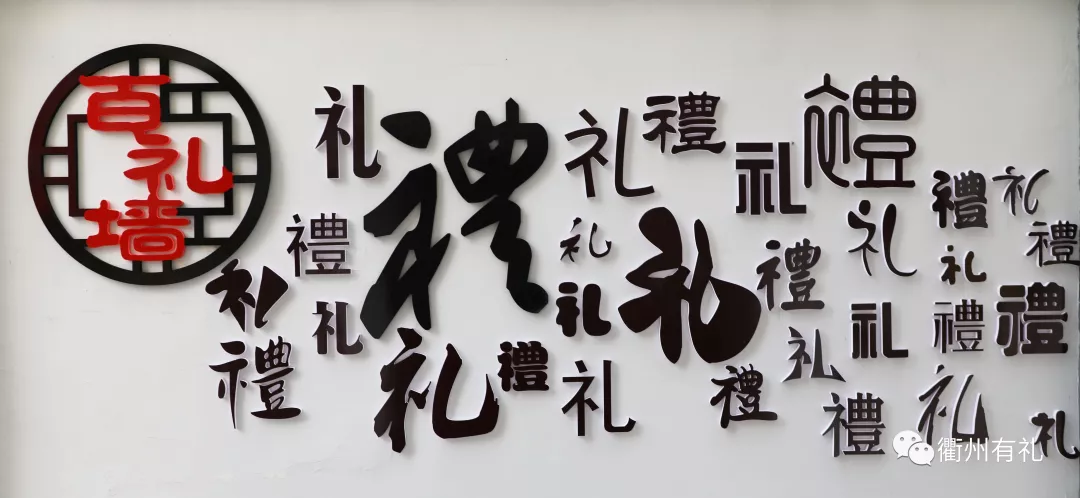 百礼墙
礼 禮 礼 禮 礼 禮 禮 礼
禮 礼 礼 禮 礼 礼 禮
礼 礼 礼 礼 禮 禮
禮 礼 禮 礼 禮 礼 禮 礼 礼
衢州有礼